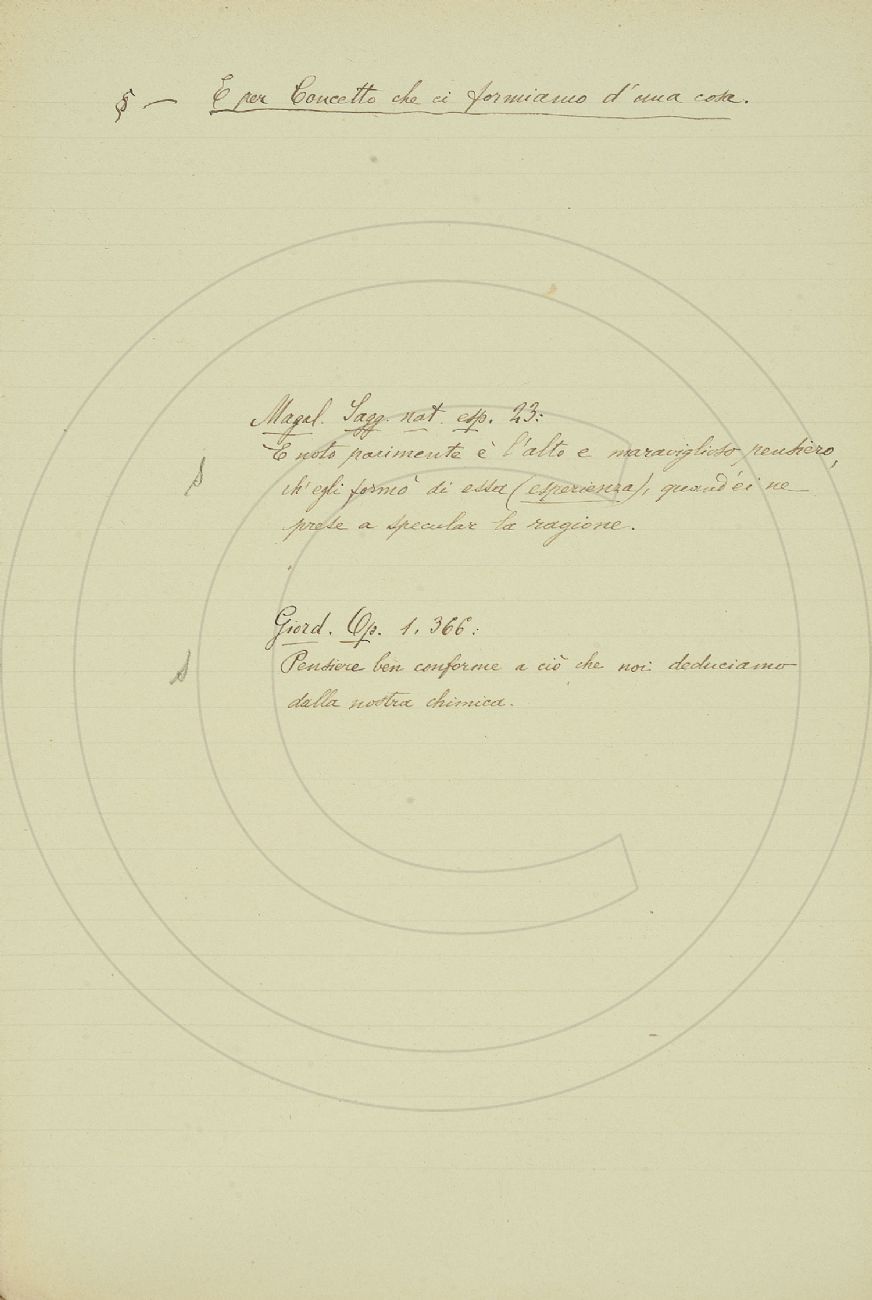 § — E per Concetto che ci formiamo d'una cosa.
Magal. Sagg. nat. esp. 23:
E noto parimente è l'alto e maraviglioso pensiero,
ch'egli formò di essa (esperienza), quand'ei ne
prese a specular la ragione.
Giord. Op. 1. 366:
Pensiere ben conforme a ciò che noi deduciamo
dalla nostra chimica.